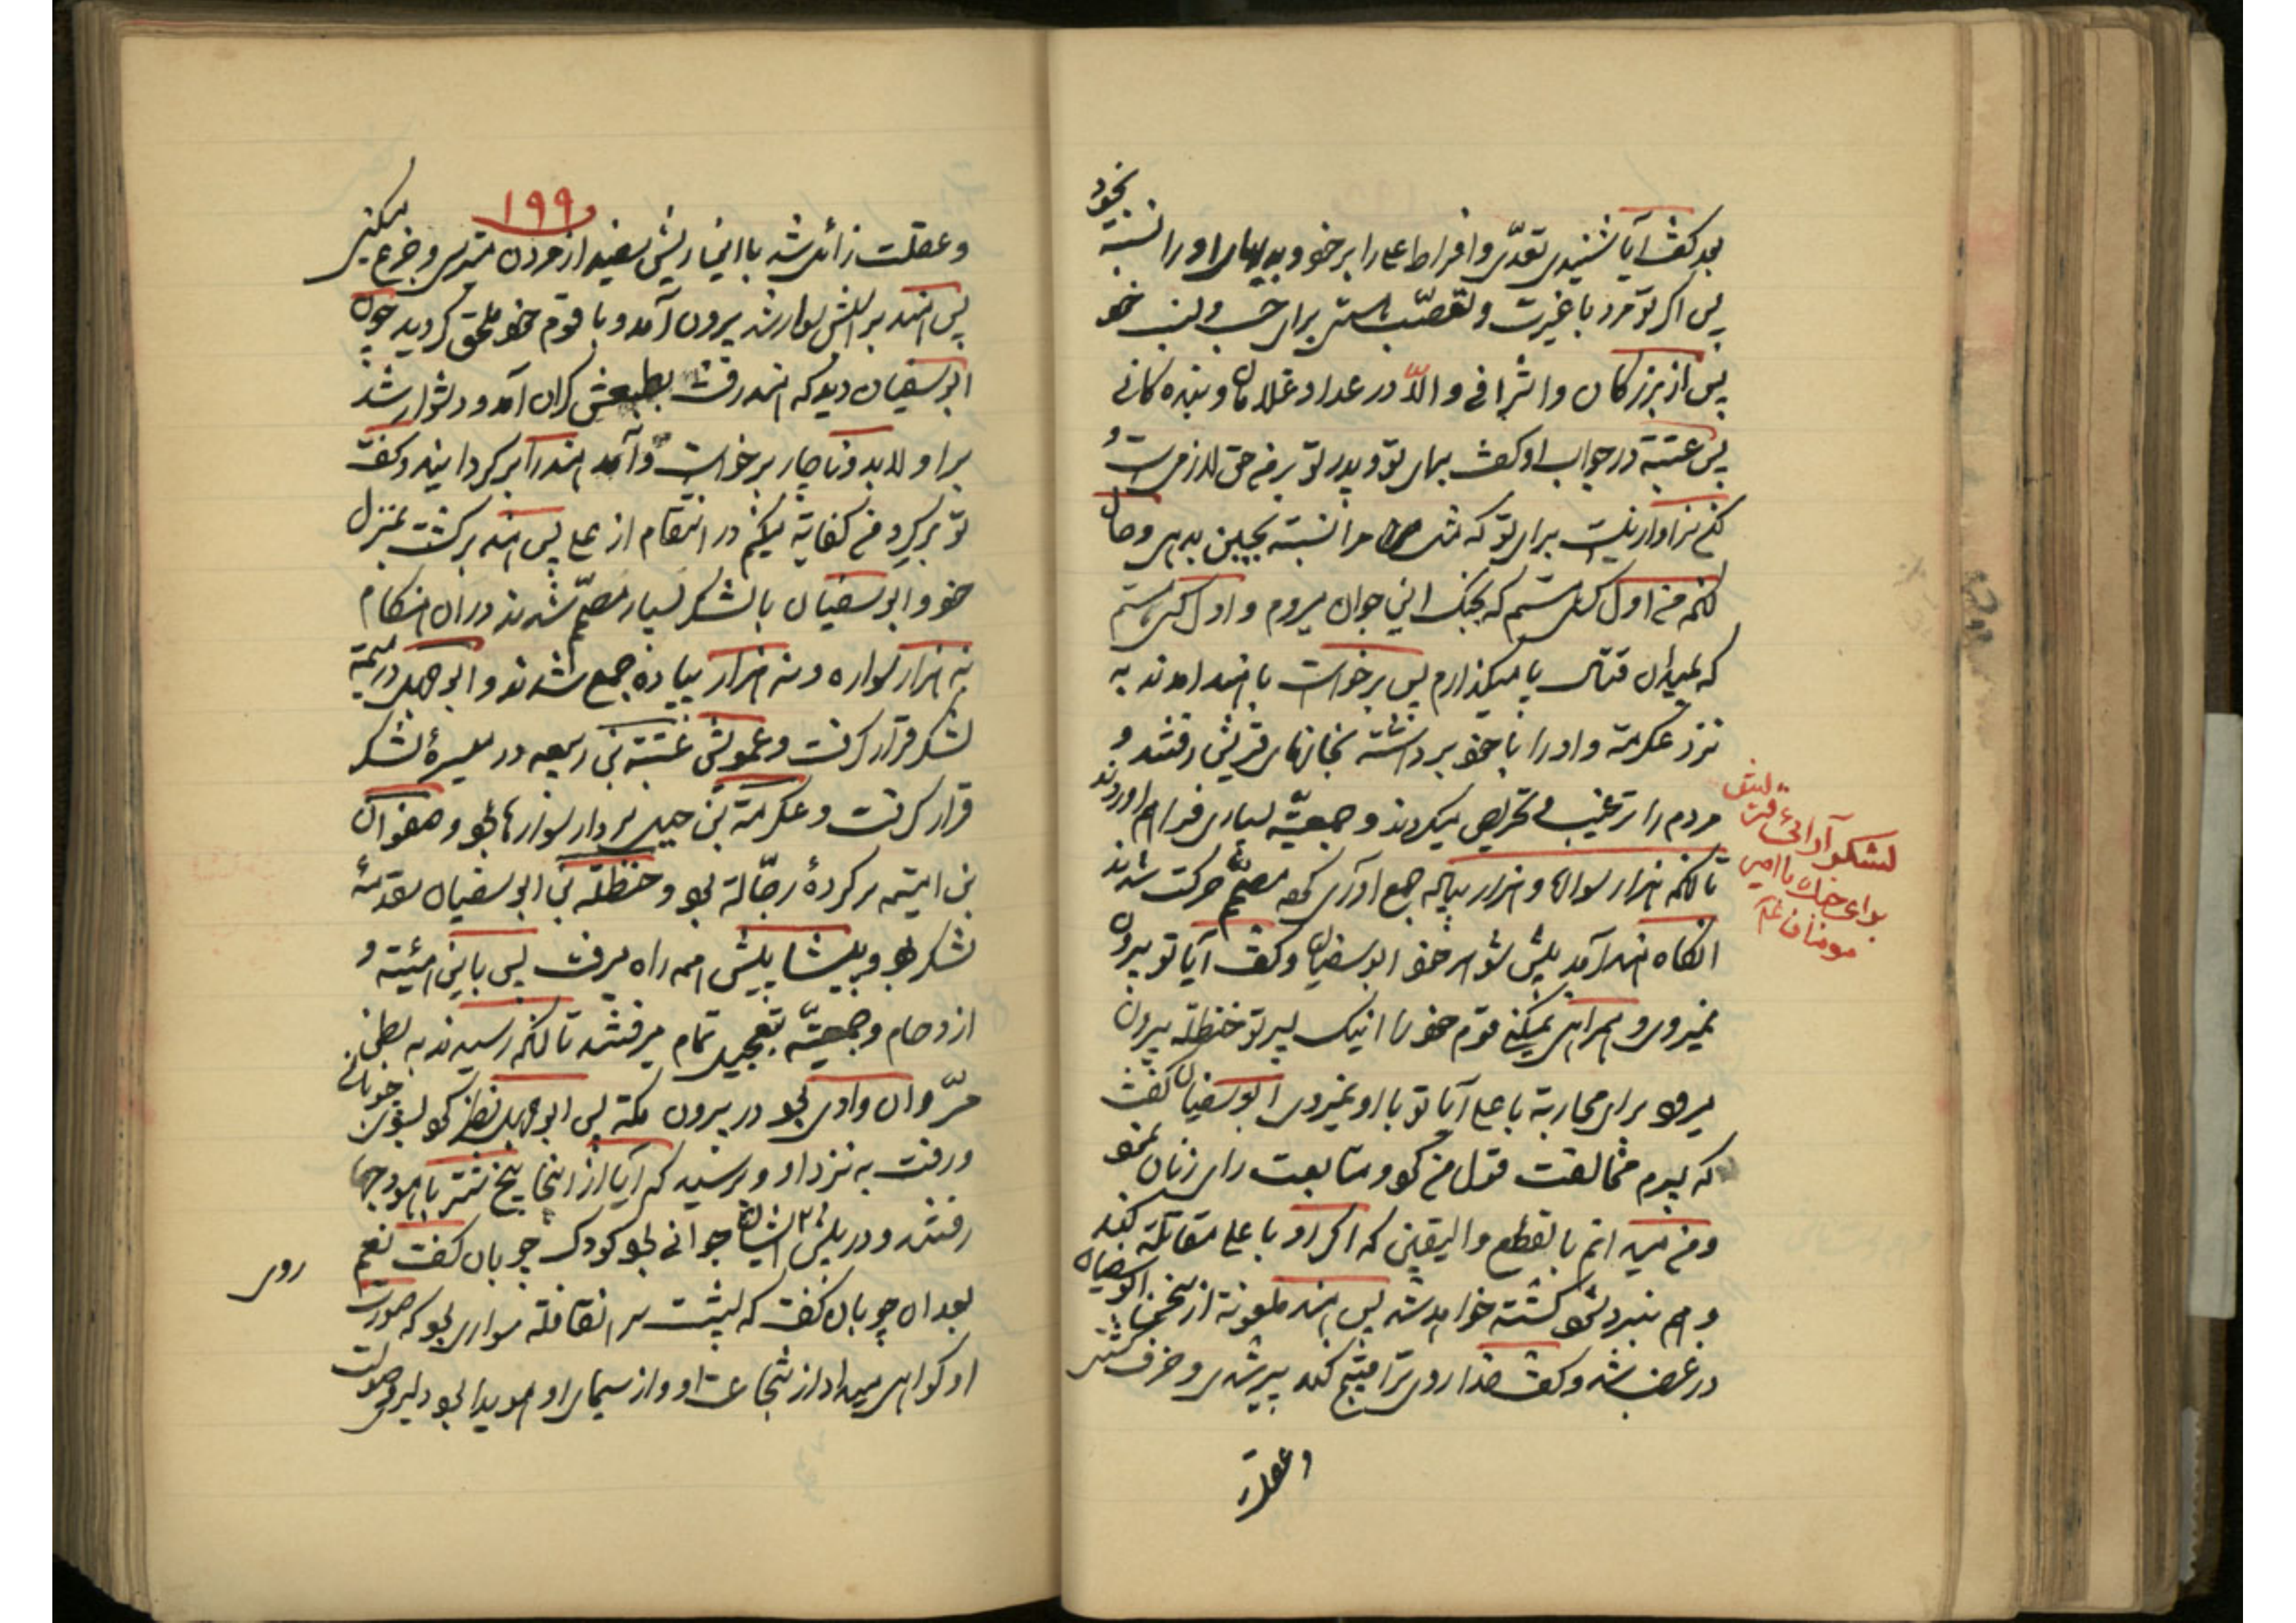 بعد گفت آیا شنیدی تعدّی و افراط علی را بر خود و پدرهای او را نسبة بخود
پس اگر تو مرد با غیرت و تعصّب هستی برای حسب و نسب خود
پس از بزرگان و اشرافی و الّا در عداد غلامان و بنده گانی
پس عتبة در جواب او گفت بهای تو و پدر تو بر من حق لازمی است و
سزاوار نیست برای تو که مثل مرا نسبة بجبن بدهی و حال
آنکه من اول کسی هستم که بجنگ این جوان میروم و اول کسی هستم
که بمیدان قتال پا میگذارم پس برخواست با هند امدند به
نزد عکرمة و او را با خود برداشته بخانهای قریش رفتند و
مردم را ترغیب و تحریص میکردند و جمعیّة بسیاری فراهم اوردند
تا آنکه هزار سواره و هزار پیاله جمع آوری کرده مصمّم حرکت شدند
انگاه هند آمد پیش شوهر خود ابوسفیان و گفت آیا تو بیرون
نمیروی و همراهی نمیکنی قوم خود را اینک پسر تو حنظلة بیرون
میرود برای محاربة با علی آیا تو با او نمیروی ابوسفیان گفت
که پسرم مخالفت قول من کرد و متابعت رای زنان نمود
و من میدانم بالقطع و الیقین که اگر او با علی مقاتلة کند
و هم نبرد شود کشته خواهد شد پس هند ملعونة از سخن ابوسفیان
در غضب شد و گفت خدا روی ترا قبیح کند پیر شدی و خرف گشتی
وعقلت
لشکر آرائی قریش
برای جنک با امیر
مومنان ع
۱۹۹
و عقلت زائل شد با این ریش سفید از مردن میترسی و جزع میکنی
پس هند بر اسبش سوار شد بیرون آمد و با قوم خود ملحق گردید چون
ابوسفیان دید که هند رفت بطبعش گران آمد و دشوار شد
بر او لابد و ناچار برخواست و آمد هند را برگردانید و گفت
تو برگرد من کفایة میکنم در انتقام از علی پس هند برگشت بمنزل
خود و ابوسفیان با لشکر بسیار مصمّم شدند در ان هنگام
نه هزار سواره و نه هزار پیاده جمع شدند و ابوجهل در میمنة
لشکر قرار گرفت و عمویش عتبة بن ربیعه در میسرۀ لشکر
قرار گرفت و عکرمة بن جهل سردار سوارها بود و صفوان
بن امیّه سرکردۀ رجّالة بود و حنظلة بن ابوسفیان مقدمۀ
لشکر بود و پیشاپیش همه راه میرفت پس باین هیئة و
ازدحام و جمعیّة بتعجیل تمام میرفتند تا آنکه رسیدند به بطن
مرّ و ان وادی بود در بیرون مکة پس ابوجهل نظر کرد بسوی چوپانی
و رفت به نزد او و پرسید که آیا از اینجا پنج شتر با هودجها
رفتند و در پیش ایشان جوانی بود کودک چوپان گفت نعم
بعد ان چوپان گفت که پشت سر انقافله سواری بود که صورت
او گواهی میداد از شجاعت او و از سیمای او هویدا بود دلیری و صولت
روی